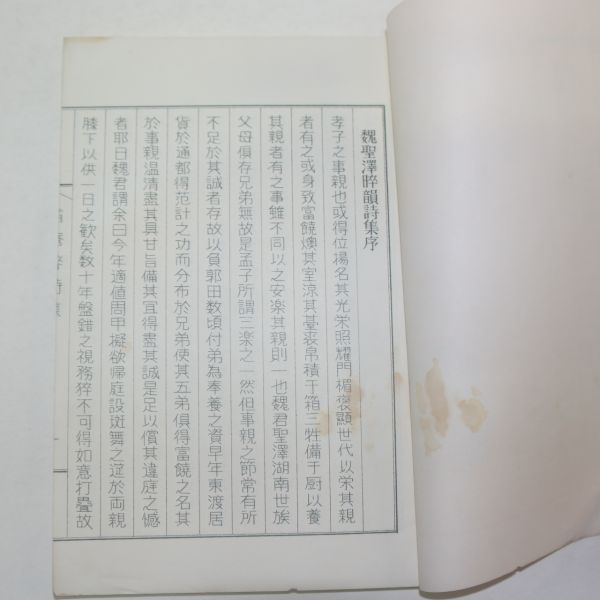 魏聖澤晬韻詩集序
孝子之事親也或得位揚名其光栄照耀門楣褒顕世代以栄其親
者有之或身致富饒燠其室涼其臺裘帛積于箱三牲備于厨以養
其親者有之事雖不同以之安楽其親則一也魏君聖澤湖南世族
父母俱存兄弟無故是孟子所謂三楽之一然但事親之節常有所
不足於其誠者存故以負郭田数頃付弟為奉養之資早年東渡居
貨於通都得范計之功而分布於兄弟使其五弟俱得富饒之名其
於事親温清盡其具甘旨備其宜得盡其誠是足以償其違庭之憾
者耶日魏君謂余曰今年適値周甲擬欲帰庭設斑舞之莚於両親
膝下以供一日之歓矣数十年盤錯之視務猝不可得如意打疊故